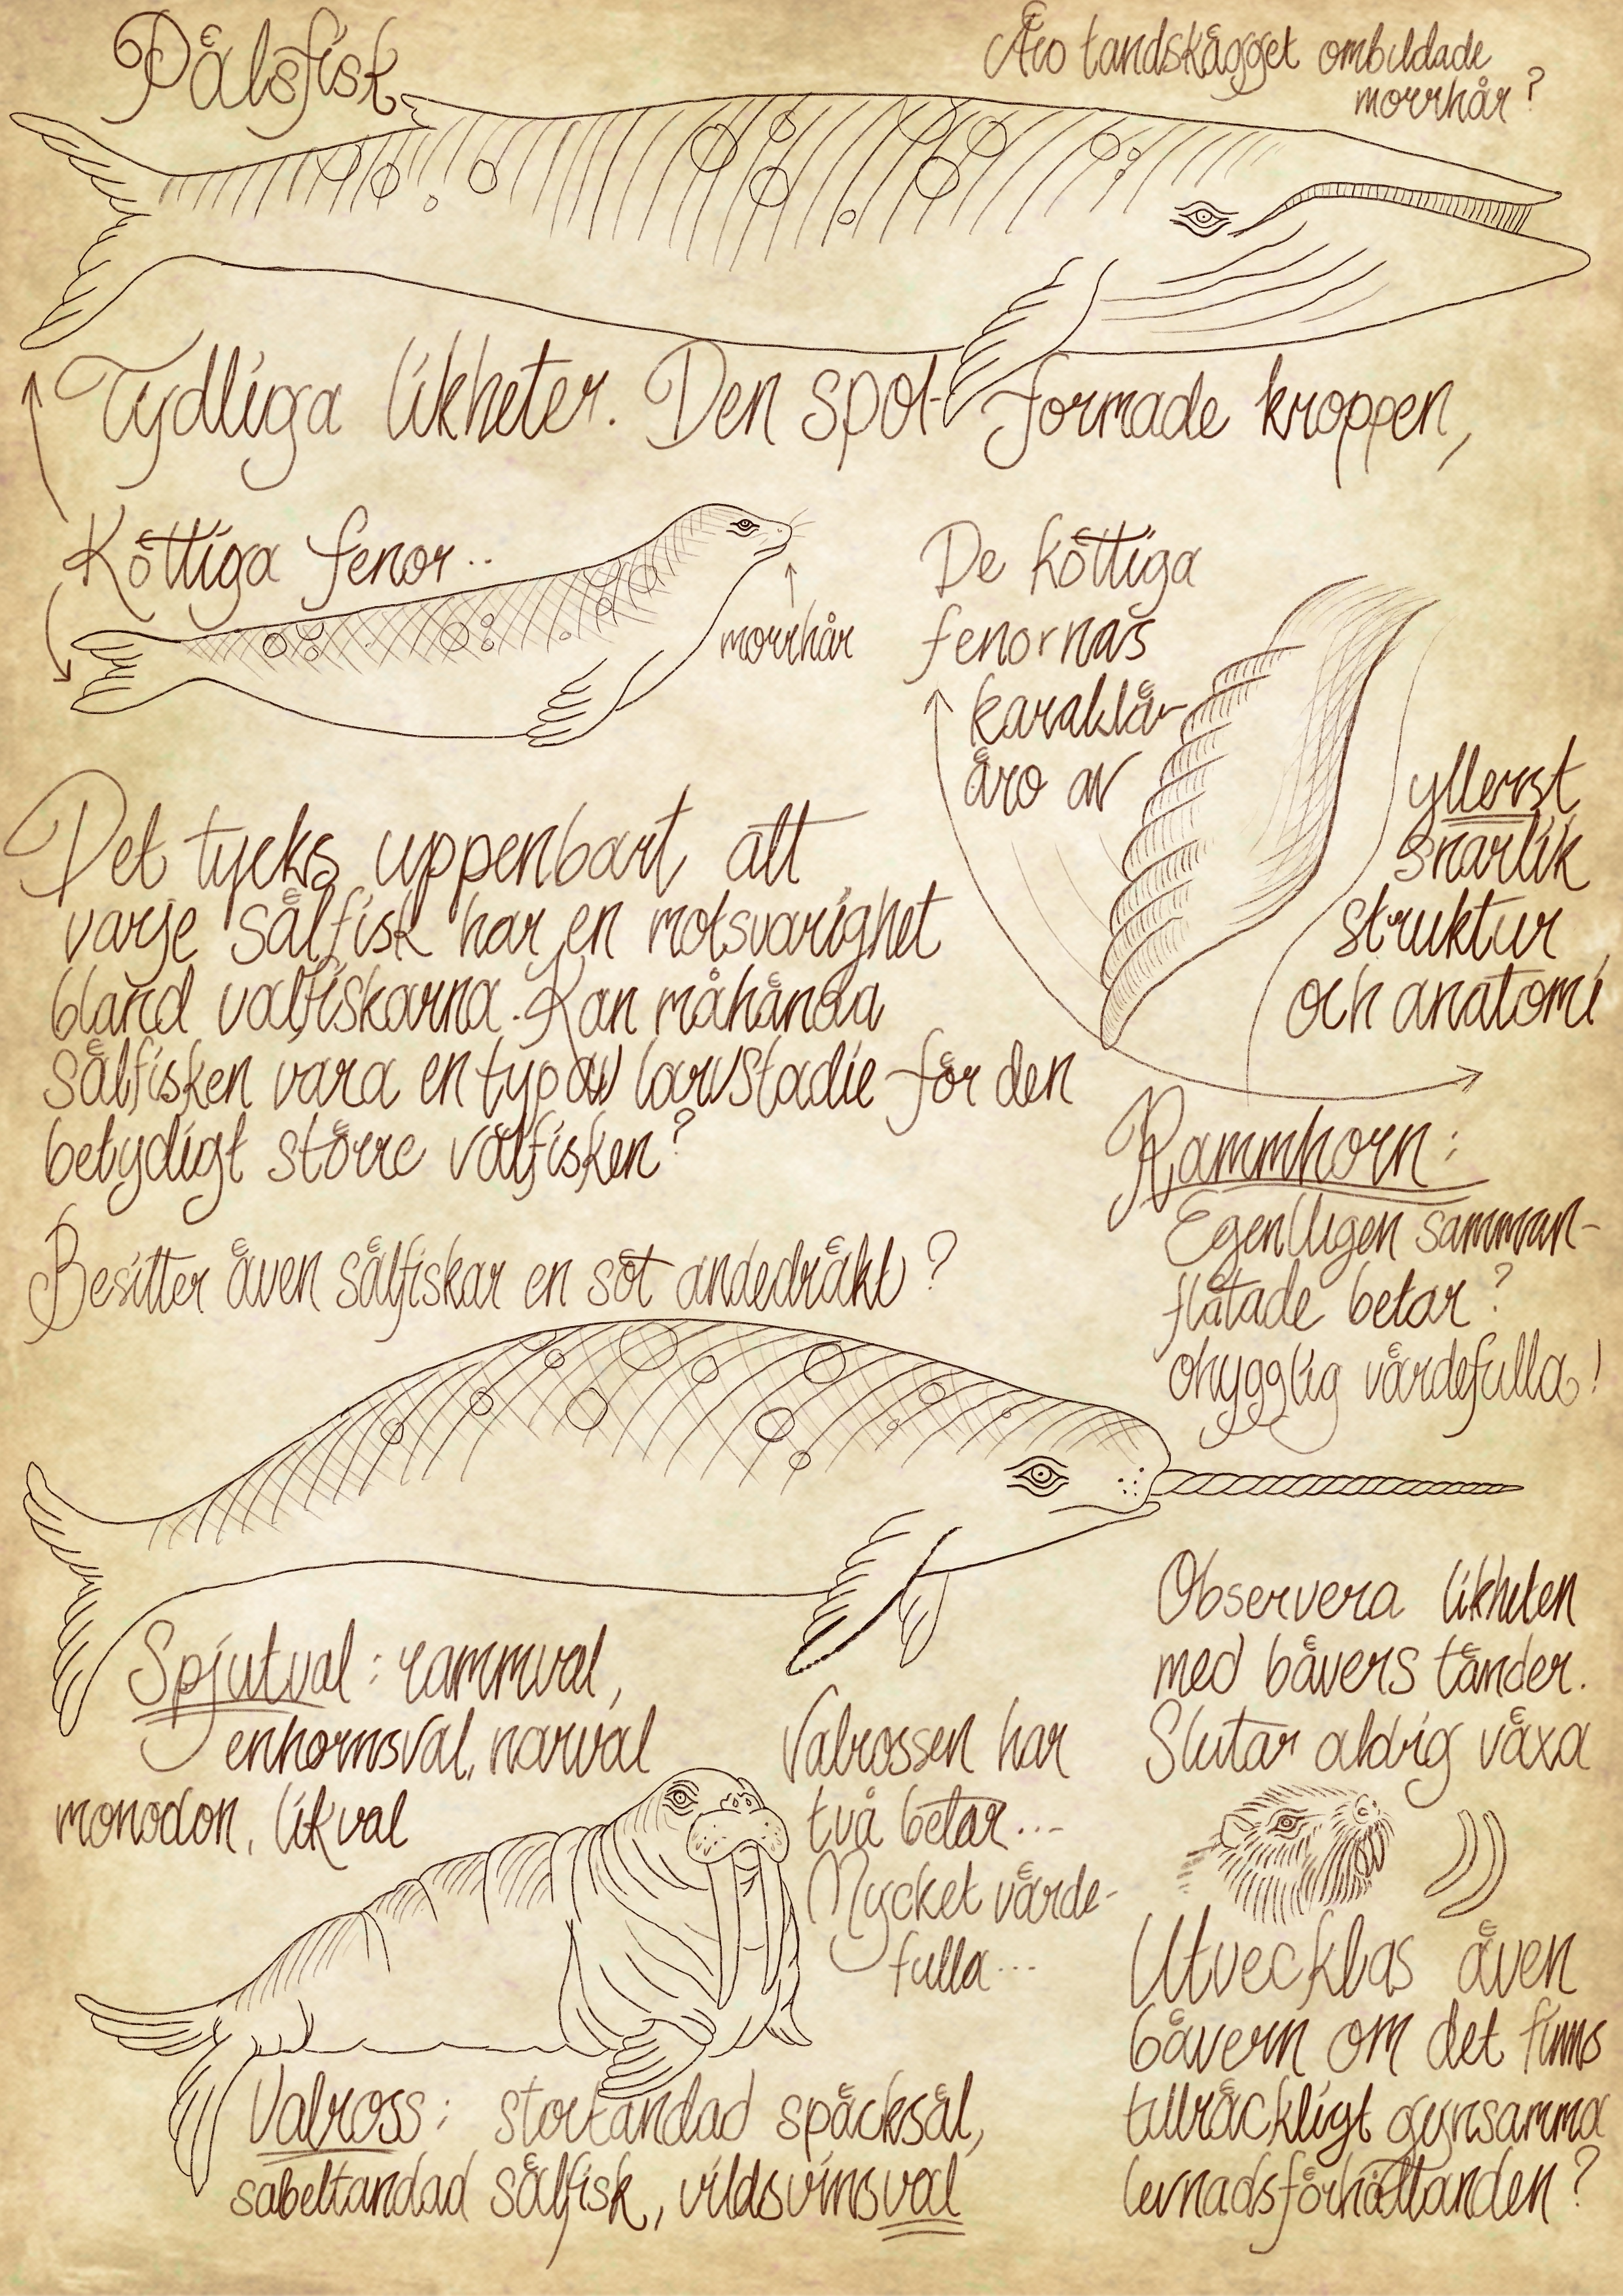 Pälsfisk
Äro tandskägget ombildade
morrhår?
Tydliga likheter. Den spol-formade kroppen,
Köttiga fenor..
morrhår
De köttiga
fenornas
karaktär
äro av
ytterst
snarlik
struktur
och anatomi
Det tycks uppenbart att
varje sälfisk har en motsvarighet
bland valfiskarna. Kan måhända
sälfisken vara en typ av larvstadie för den
betydigt större valfisken?
Besitter även sälfiskar en söt andedräkt?
Rammhorn:
Egentligen samman-
flätade betar?
ohygglig värdefulla!
Spjutval: rammval,
enhornsval, narval
monodon, likval
Observera likheten
med bävers tänder.
Slutar aldrig växa
Valrossen har
två betar...
Mycket värde-
fulla...
Utvecklas även
bävern om det finns
tillräckligt gynsamma
levnadsförhållanden?
Valross: stortandad späcksäl,
sabeltandad sälfisk, vildsvinsval